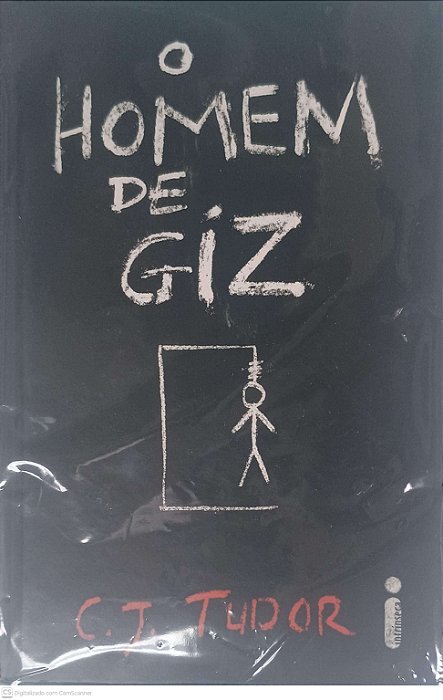 O
HOMEM
DE
GIZ
C.J. TUDOR
intrínseca
CS Digitalizado com CamScanner